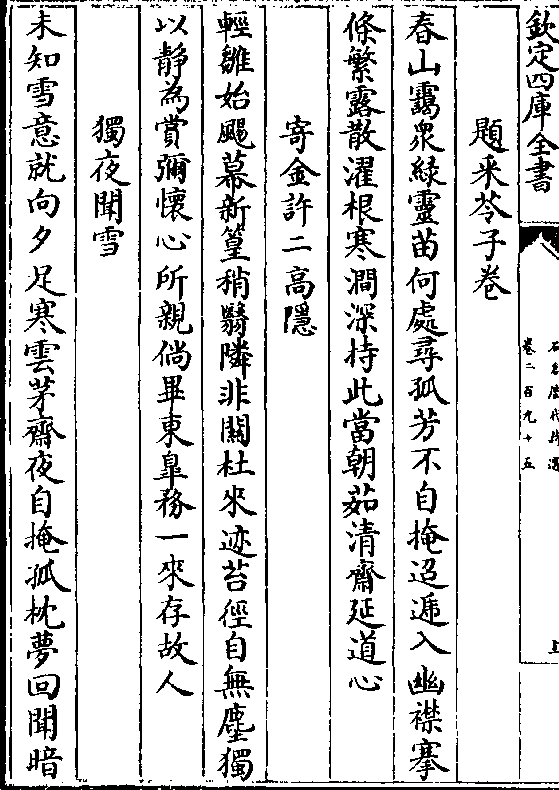 欽定四庫全書
卷二百九十五
題采苓子卷
春山靄衆綠靈苗何處尋孤芳不自掩迢遞入幽襟搴
條繁露散濯根寒澗深持此當朝茹清齋延道心
寄金許二高隱
輕雛始颺幕新篁稍翳隣非關杜來迹苔徑自無塵獨
以静為賞彌懷心所親倘畢東臯務一來存故人
獨夜聞雪
未知雪意就向夕足寒雲茅齋夜自掩孤枕夢回聞暗